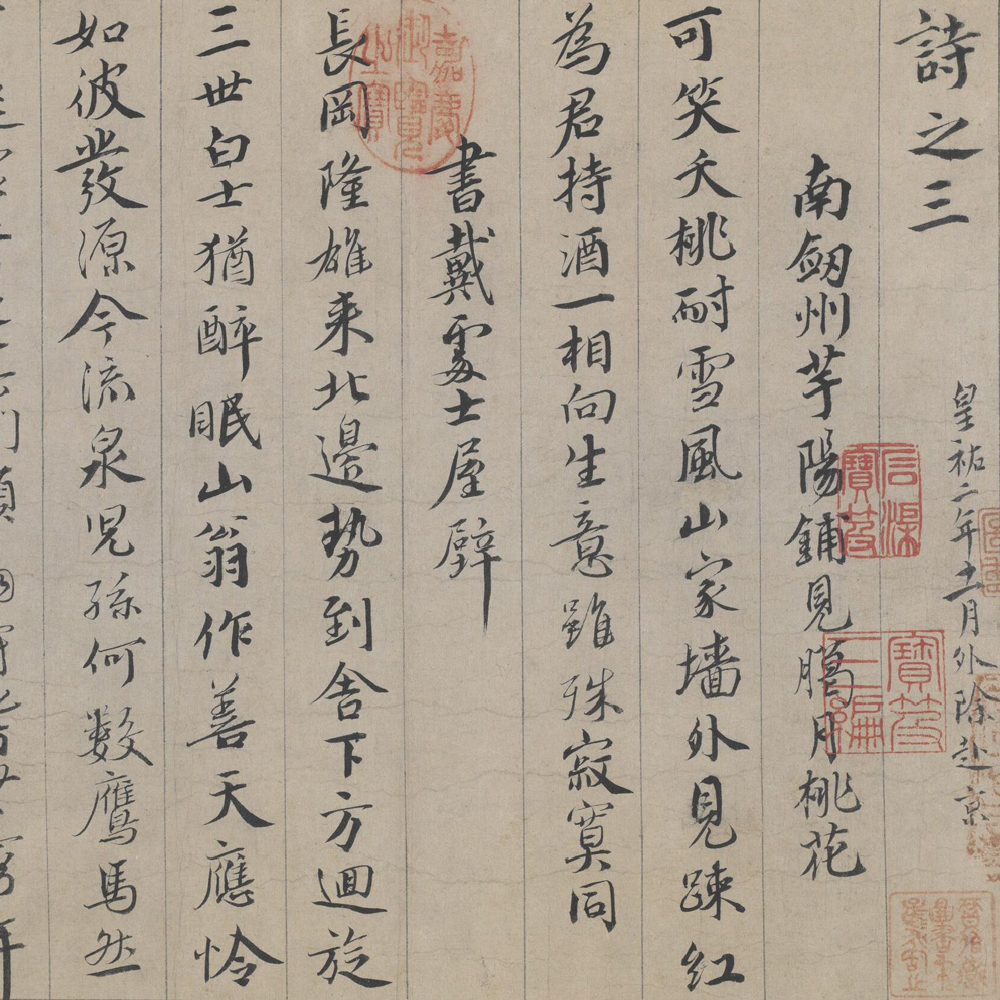 詩之三
皇祐二年十一月外除赴京
南劒州芋陽鋪見臘月桃花
可笑夭桃耐雪風山家墻外見踈紅
為君持酒一相向生意雖殊寂寞同
書戴處士屋壁
長岡隆雄来北邊勢到舍下方迴旋
三世白士猶醉眠山翁作善天應怜
如彼發源今流泉児孫何數鷹馬然
嘉慶御覽之寶
寶笈三編